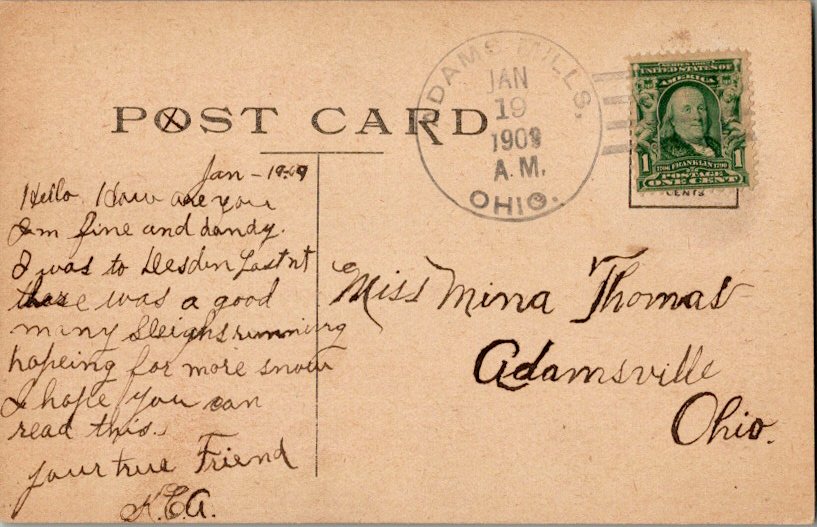 POST CARD
ADAMS MILLS,
JAN
19
1909
A.M.
OHIO.
SERIES 1902
UNITED STATES OF
AMERICA
1706 FRANKLIN 1790
1 POSTAGE 1
ONE CENT
CENTS
Jan - 19-09
Hello How are you
I'm fine and dandy.
I was to Desden Last nt
there was a good
many Sleighs running
hopeing for more snow
I hope you can
read this.
your true Friend
K.C.A.
Miss Mina Thomas
Adamsville
Ohio.